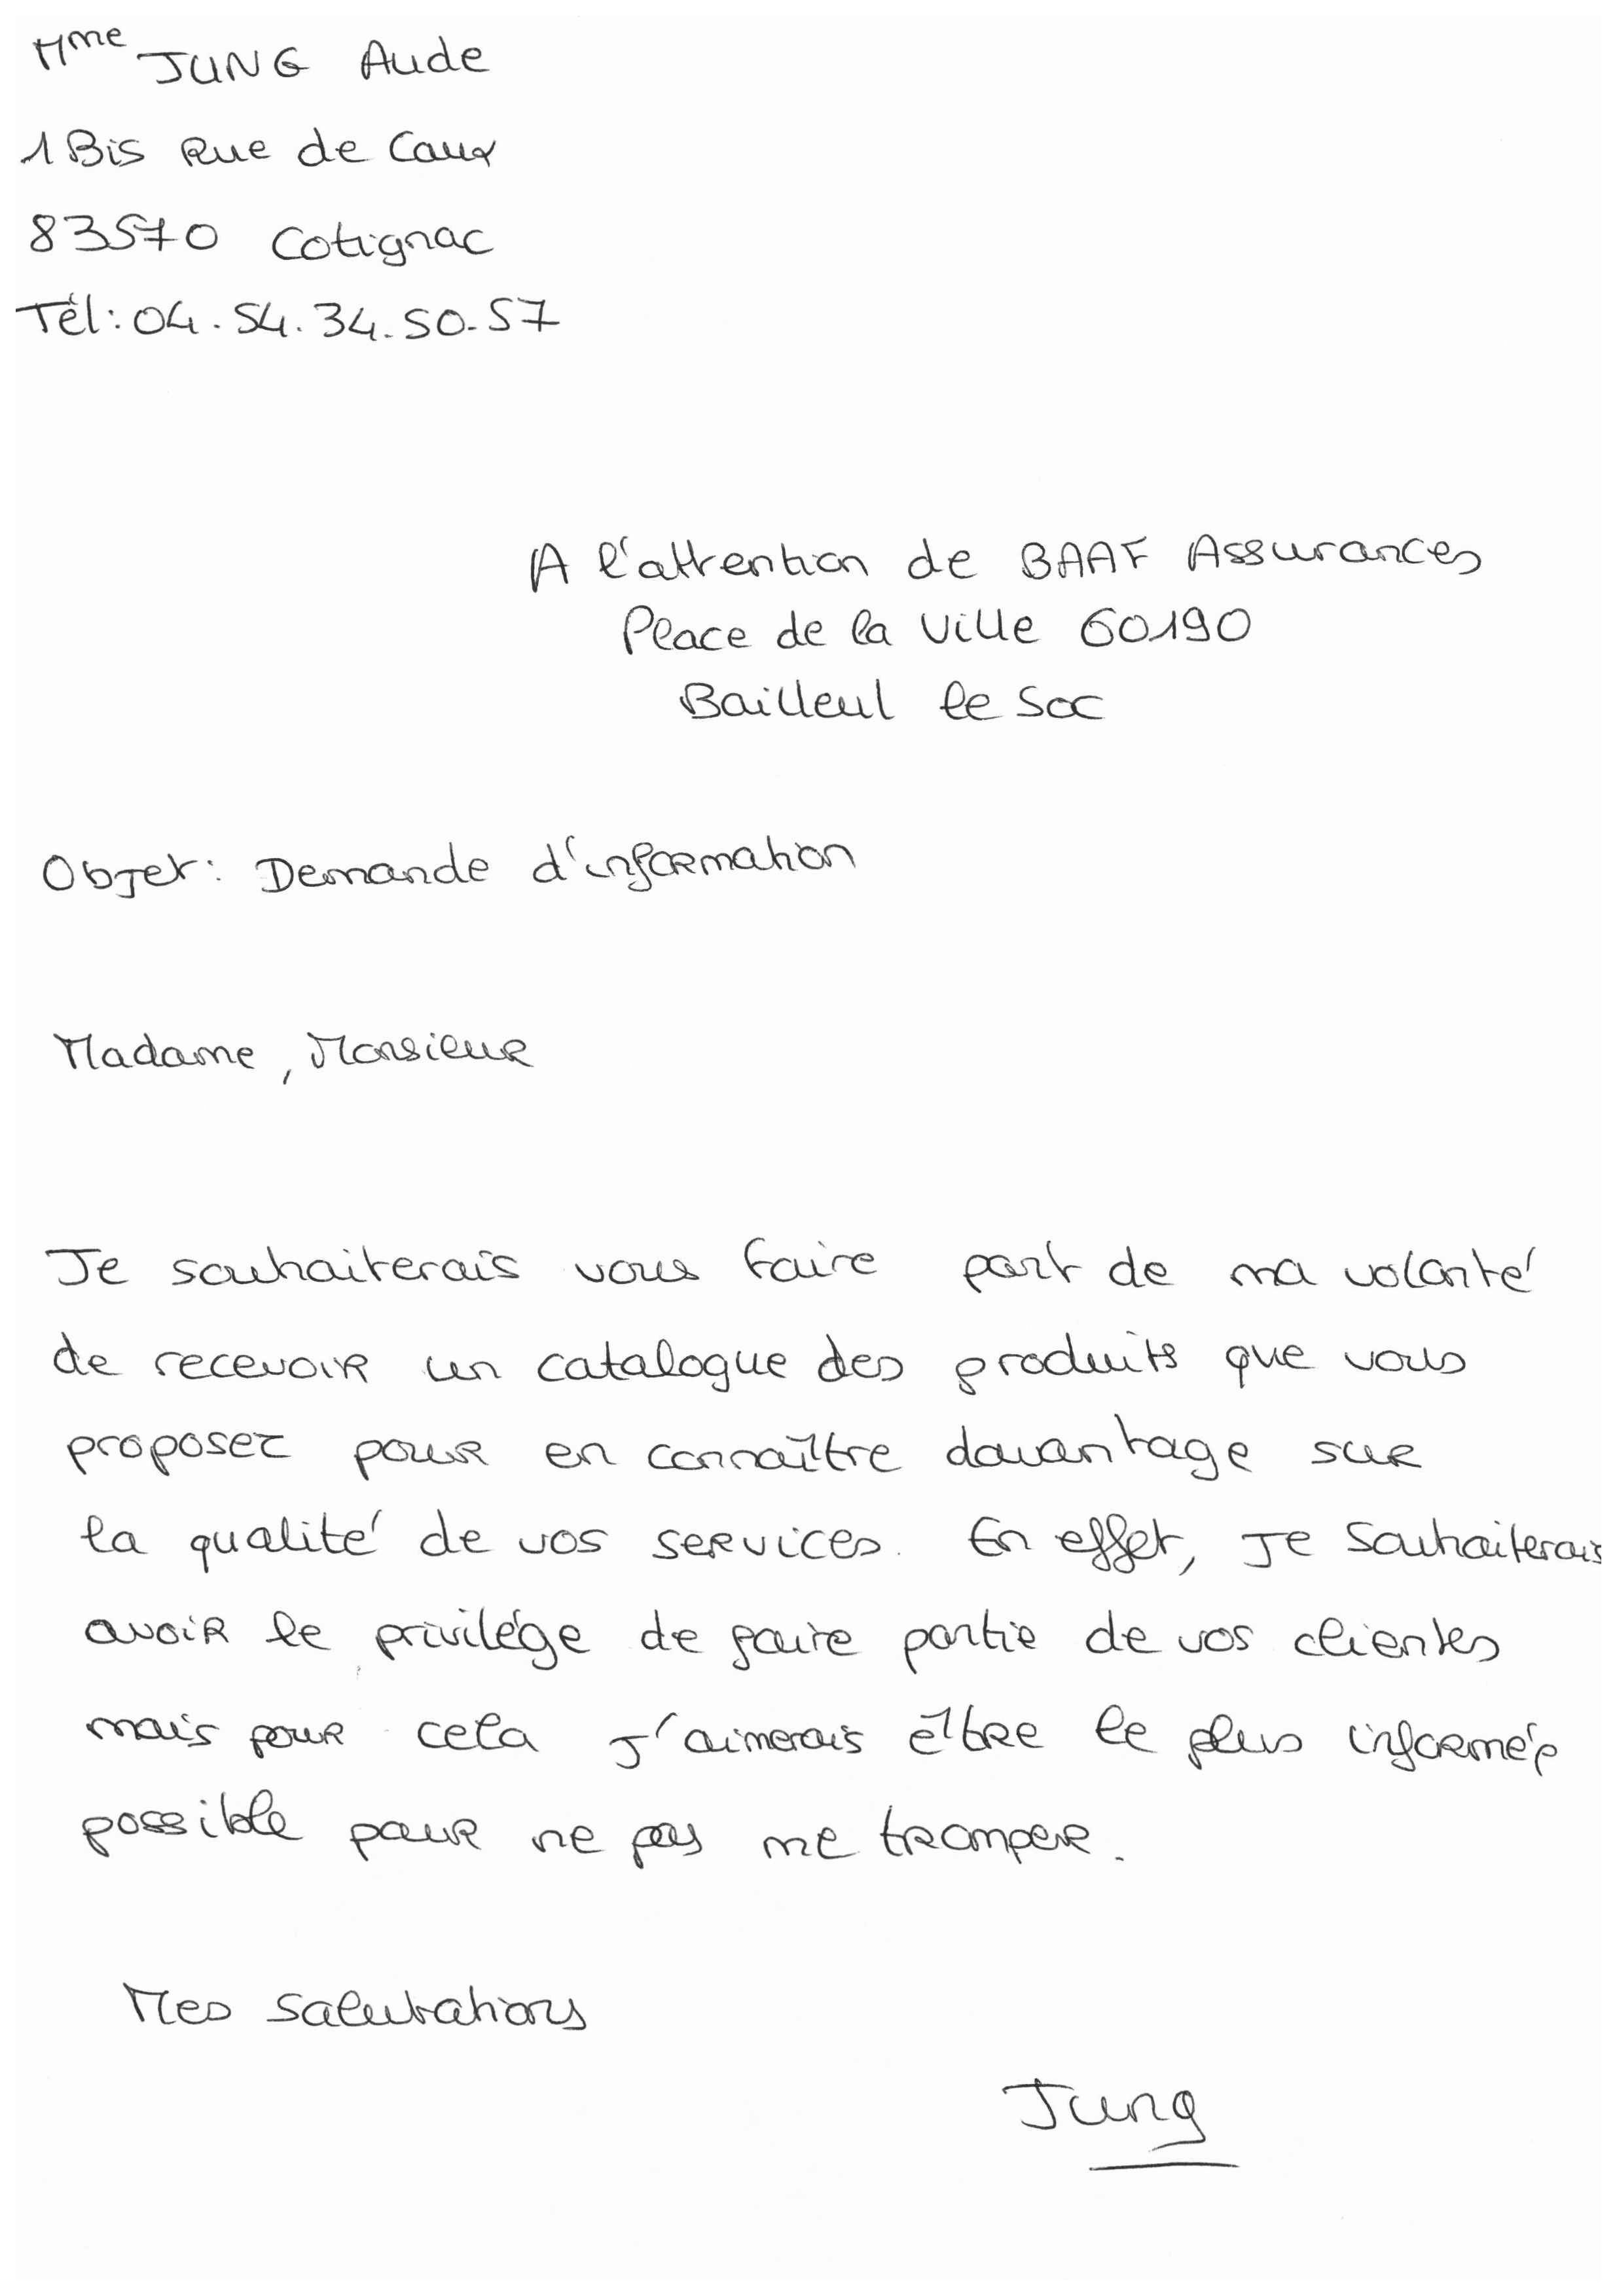 Mme JUNG Aude
1 Bis Rue de Caux
83570 Cotignac
Tél: 04.54.34.50.57
A l'attention de BAAF Assurances
Place de la Ville 60190
Bailleul le Soc
Objet: Demande d'information
Madame, Monsieur
Je souhaiterais vous faire part de ma volonté
de recevoir un catalogue des produits que vous
proposez pour en connaître davantage sur
la qualité de vos services. En effet, je souhaiterais
avoir le privilége de faire partie de vos clientes
mais pour cela j'aimerais être le plus informée
possible pour ne pas me tromper.
Mes salutations
Jung